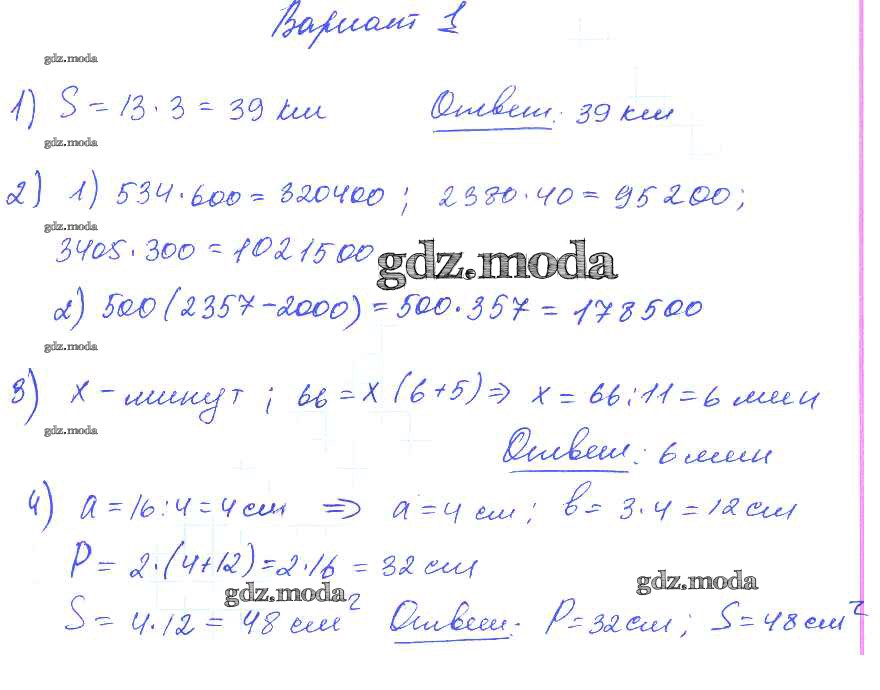 Вариант 1
gdz.moda
1) S = 13 · 3 = 39 км Ответ: 39 км
gdz.moda
2) 1) 534 · 600 = 320400 ; 2380 · 40 = 95200 ;
gdz.moda
3405 · 300 = 1021500
gdz.moda
2) 500 (2357 - 2000) = 500 · 357 = 178500
gdz.moda
3) x - минут ; 66 = x (6+5) ⇒ x = 66 : 11 = 6 мин
gdz.moda
Ответ: 6 мин
4) a = 16 : 4 = 4 см ⇒ a = 4 см ; b = 3 · 4 = 12 см
P = 2 · (4+12) = 2 · 16 = 32 см
gdz.moda gdz.moda
S = 4 · 12 = 48 см² Ответ: P = 32 см ; S = 48 см²